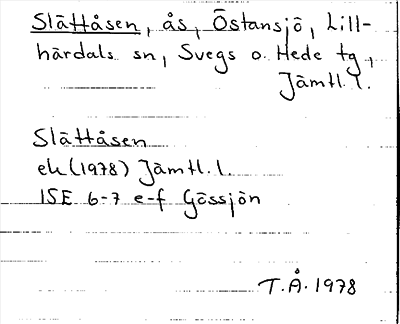 Slättåsen, ås, Östansjö, Lill-
härdals sn, Svegs o. Hede tg,
Jämtl. l.
Slättåsen
ek (1978) Jämtl. l.
15E 6-7 e-f Gössjön
T.Å. 1978